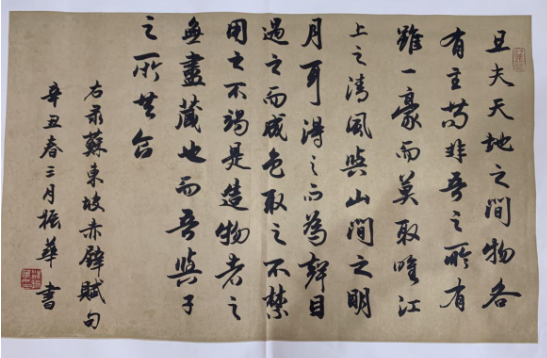 且夫天地之間物各
有主苟非吾之所有
雖一豪而莫取唯江
上之清風與山間之明
月耳得之而為聲目
遇之而成色取之不禁
用之不竭是造物者之
無盡藏也而吾與子
之所共食
右录蘇東坡赤壁賦句
辛丑春三月振華書